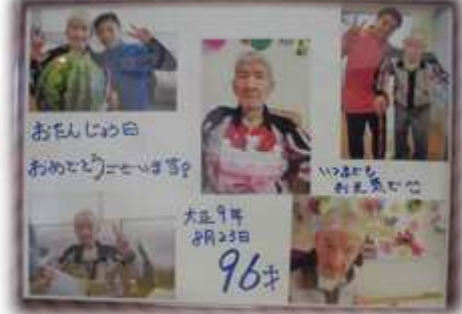 おたんじょう日
おめでとうございます!
いつまでも
お元気で
大正9年
8月23日
96才